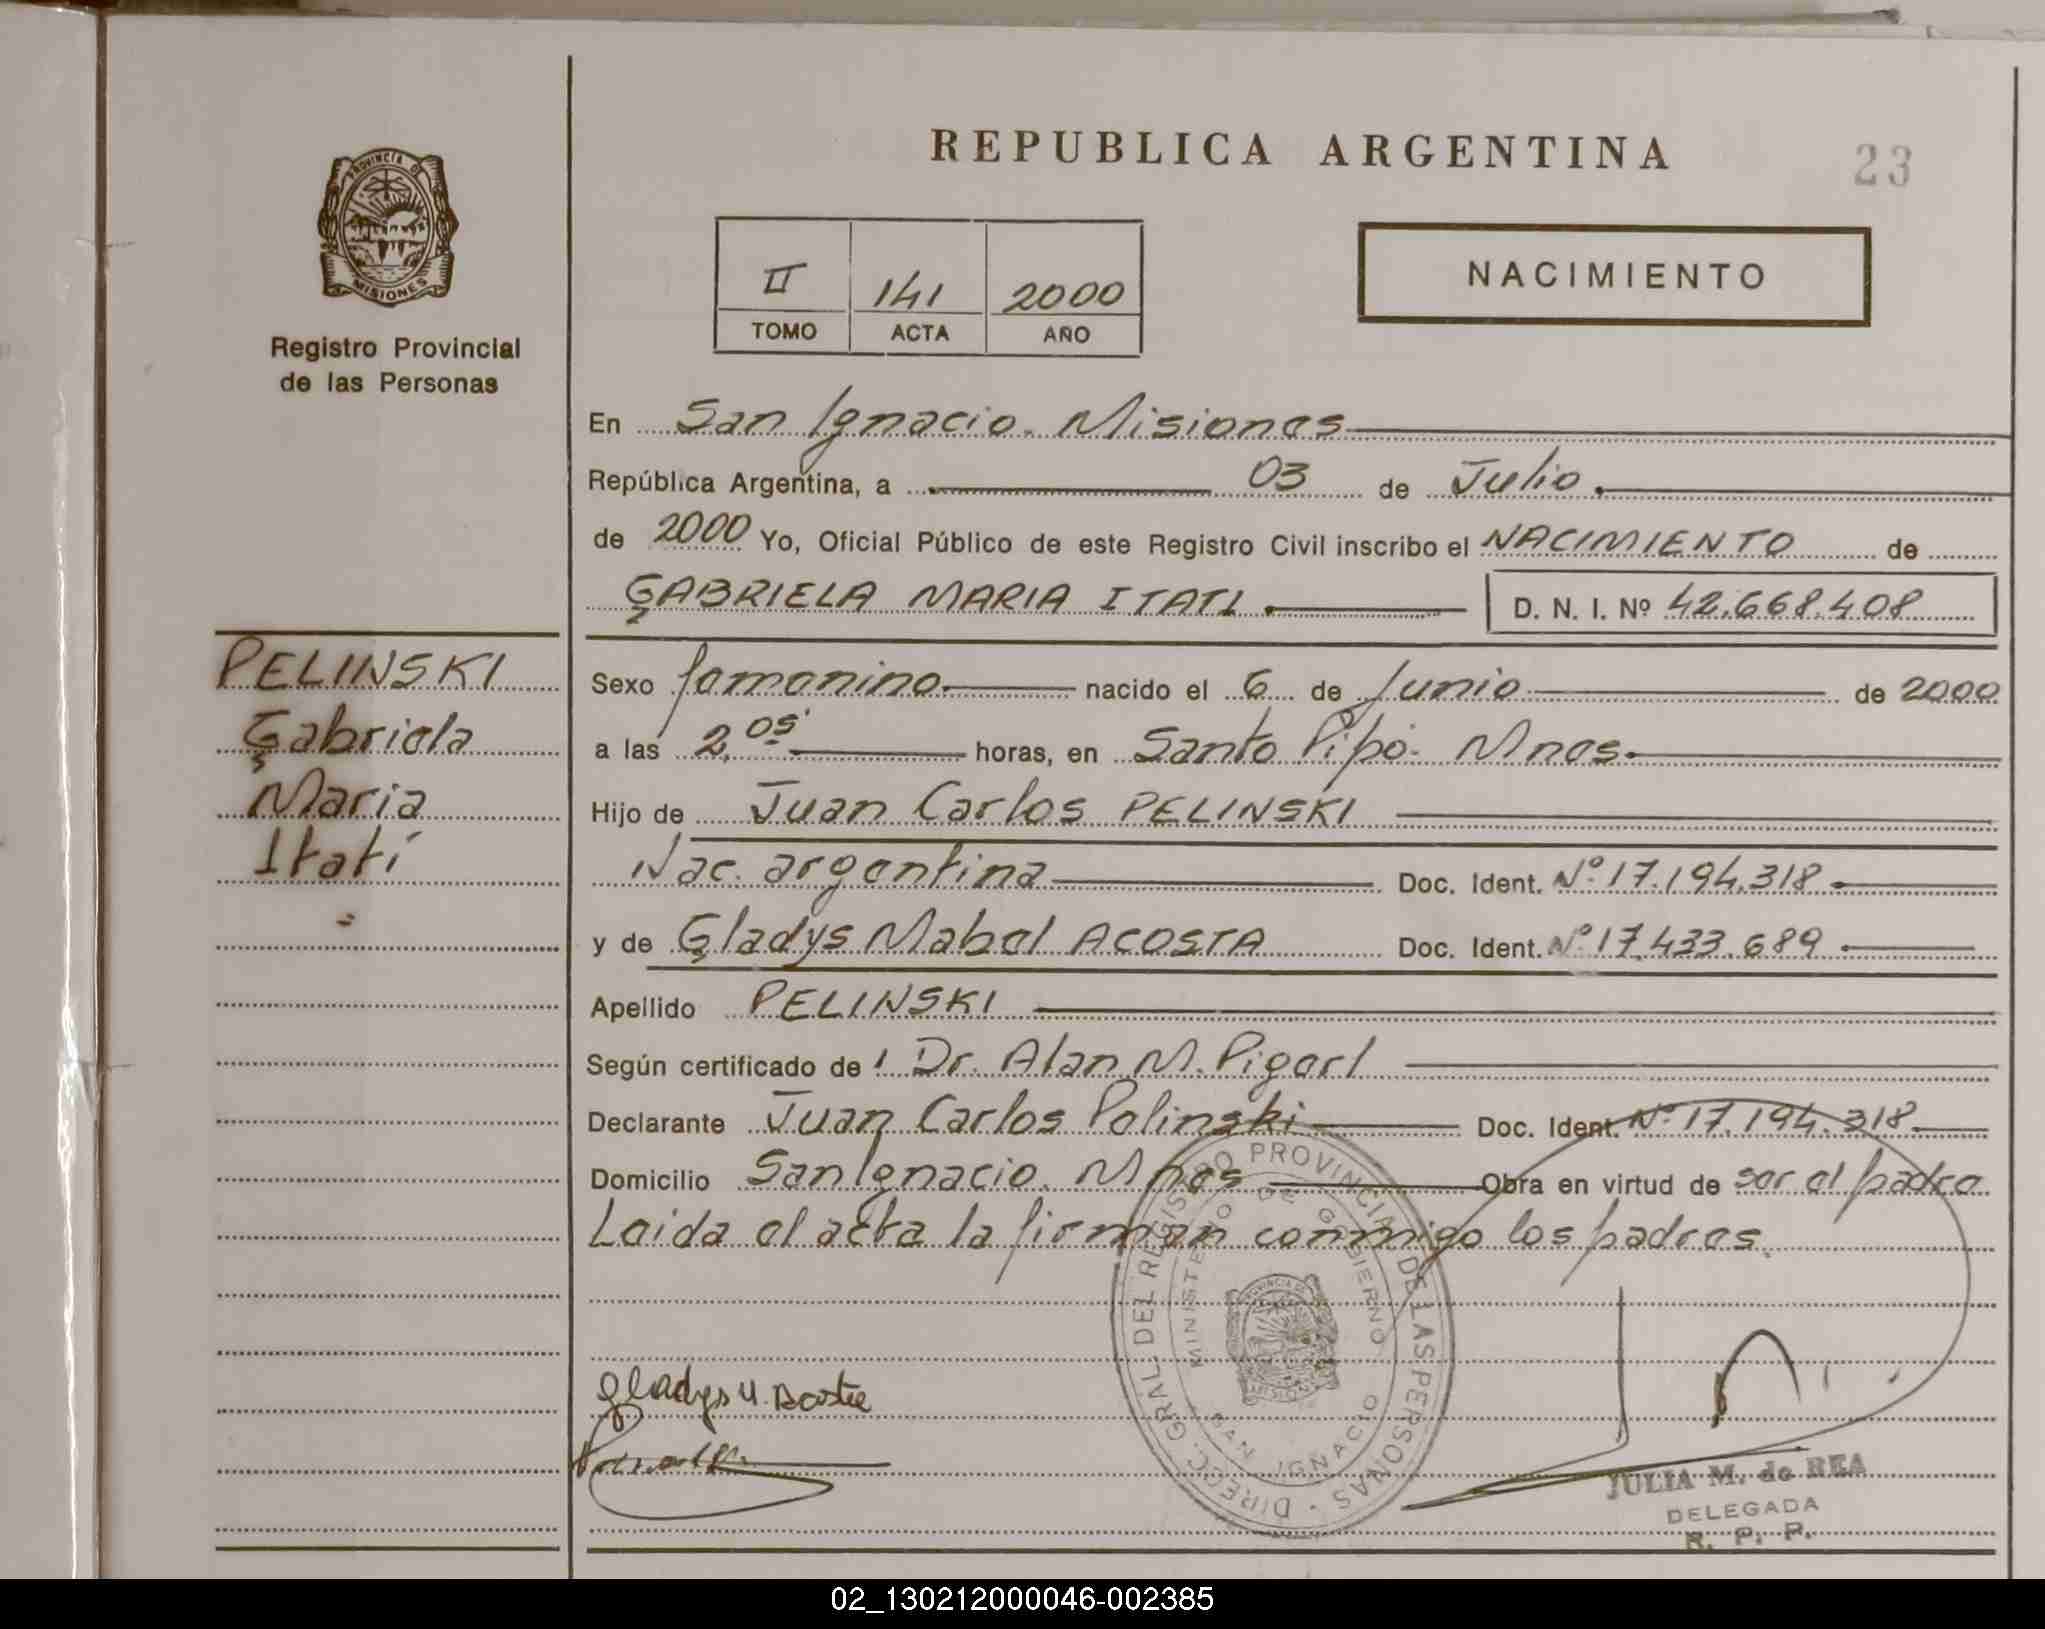 REPUBLICA ARGENTINA
23
PROVINCIA DE
MISIONES
Registro Provincial
de las Personas
II 141 2000
TOMO ACTA AÑO
NACIMIENTO
En San Ignacio. Misiones
República Argentina, a 03 de Julio.
de 2000 Yo, Oficial Público de este Registro Civil inscribo el NACIMIENTO de
GABRIELA MARIA ITATI. D. N. I. Nº 42.668.408
PELINSKI
Gabriela
Maria
Itatí
Sexo femenino nacido el 6 de Junio de 2000
a las 2,05 horas, en Santo Pipó. Mnes.
Hijo de Juan Carlos PELINSKI
Nac. argentina Doc. Ident. Nº 17.194.318
y de Gladys Mabel ACOSTA Doc. Ident. Nº 17.433.689
Apellido PELINSKI
Según certificado de l Dr. Alan M. Pigerl
Declarante Juan Carlos Pelinski Doc. Ident. Nº 17.194.318
Domicilio San Ignacio. Mnes Obra en virtud de ser el padre
Leida el acta la firman conmigo los padres.
DIRECC. GRAL DEL REGISTRO PROVINCIAL DE LAS PERSONAS
MINISTERIO DE GOBIERNO
SAN IGNACIO
Gladys M. Acosta
JULIA M. de REA
DELEGADA
R. P. P.
02_130212000046-002385